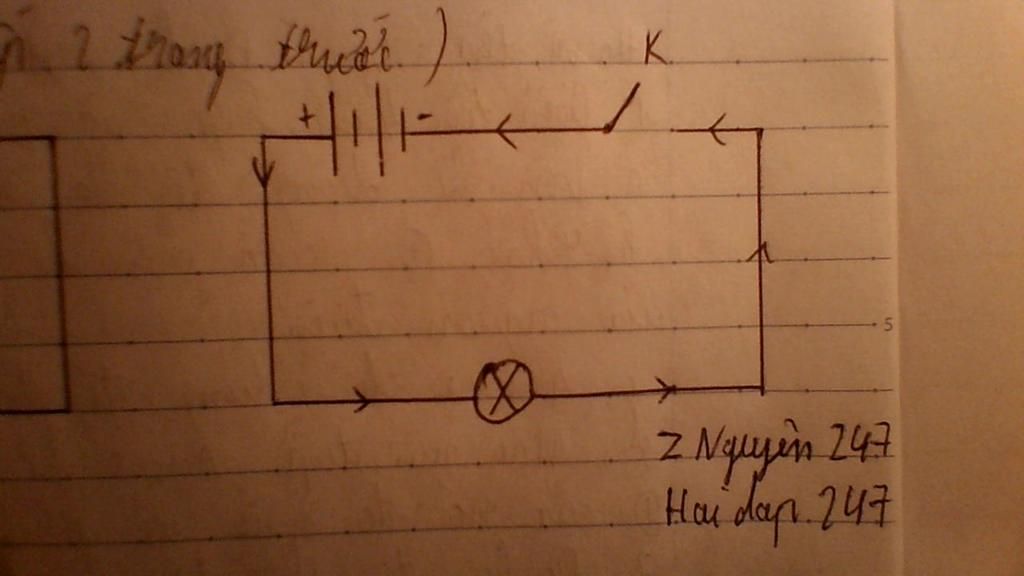 2 trang trước)
K
+ -
5
Z Nguyên 247
Hoi dap. 247